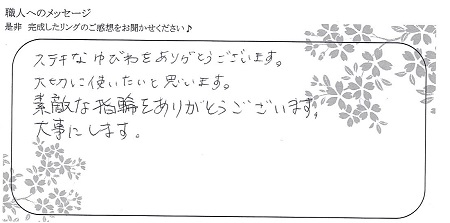 職人へのメッセージ
是非 完成したリングのご感想をお聞かせください♪
ステキなゆびわをありがとうございます。
大切に使いたいと思います。
素敵な指輪をありがとうございます。
大事にします。